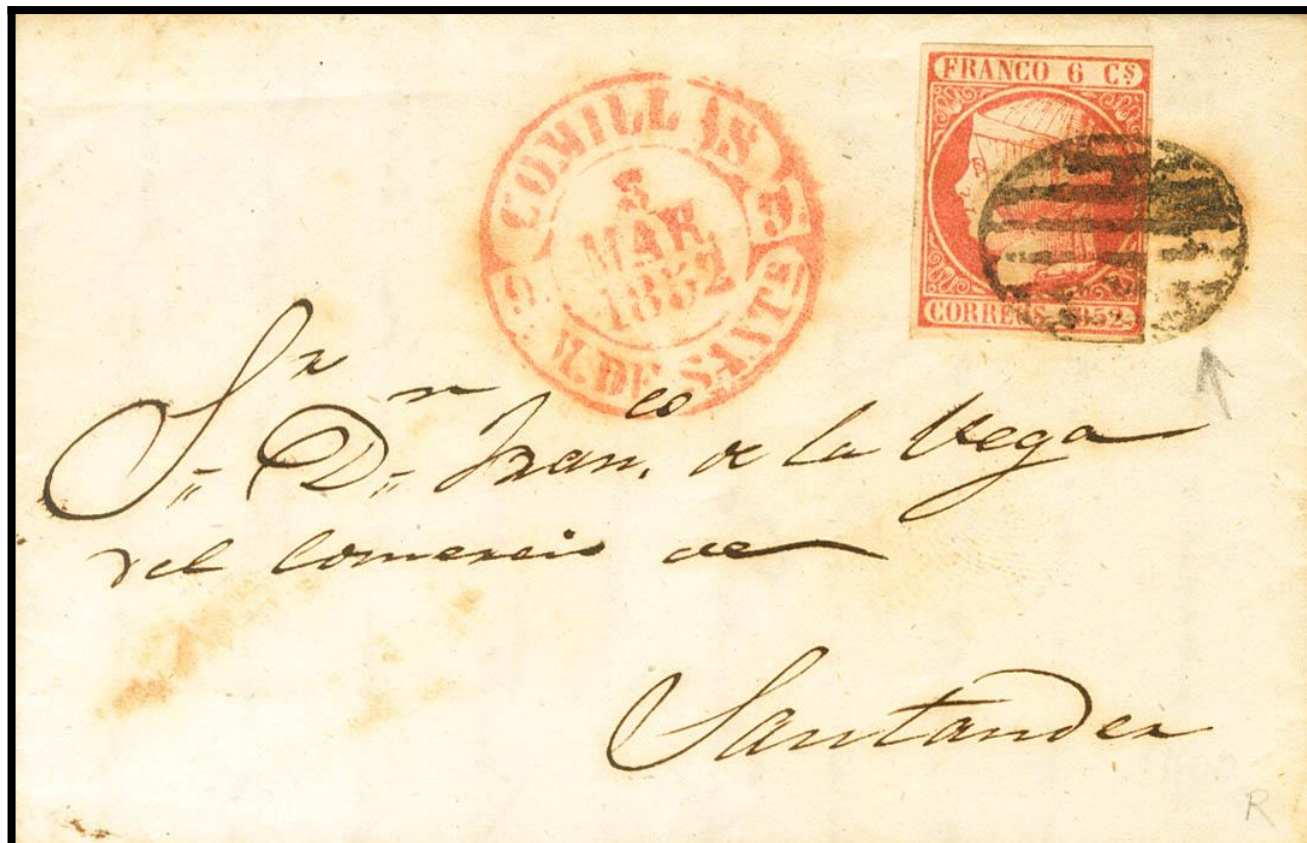 FRANCO 6 Cs
CORREOS 1852
COMILLAS
3
MAR
1852
M. DE SANTR
Sr. Dn. Franco. de la Vega
del Comercio de
Santander
R